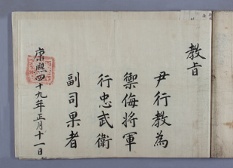 教旨
尹行教為
禦侮將軍
行忠武衛
副司果者
康熙四十九年正月十一日